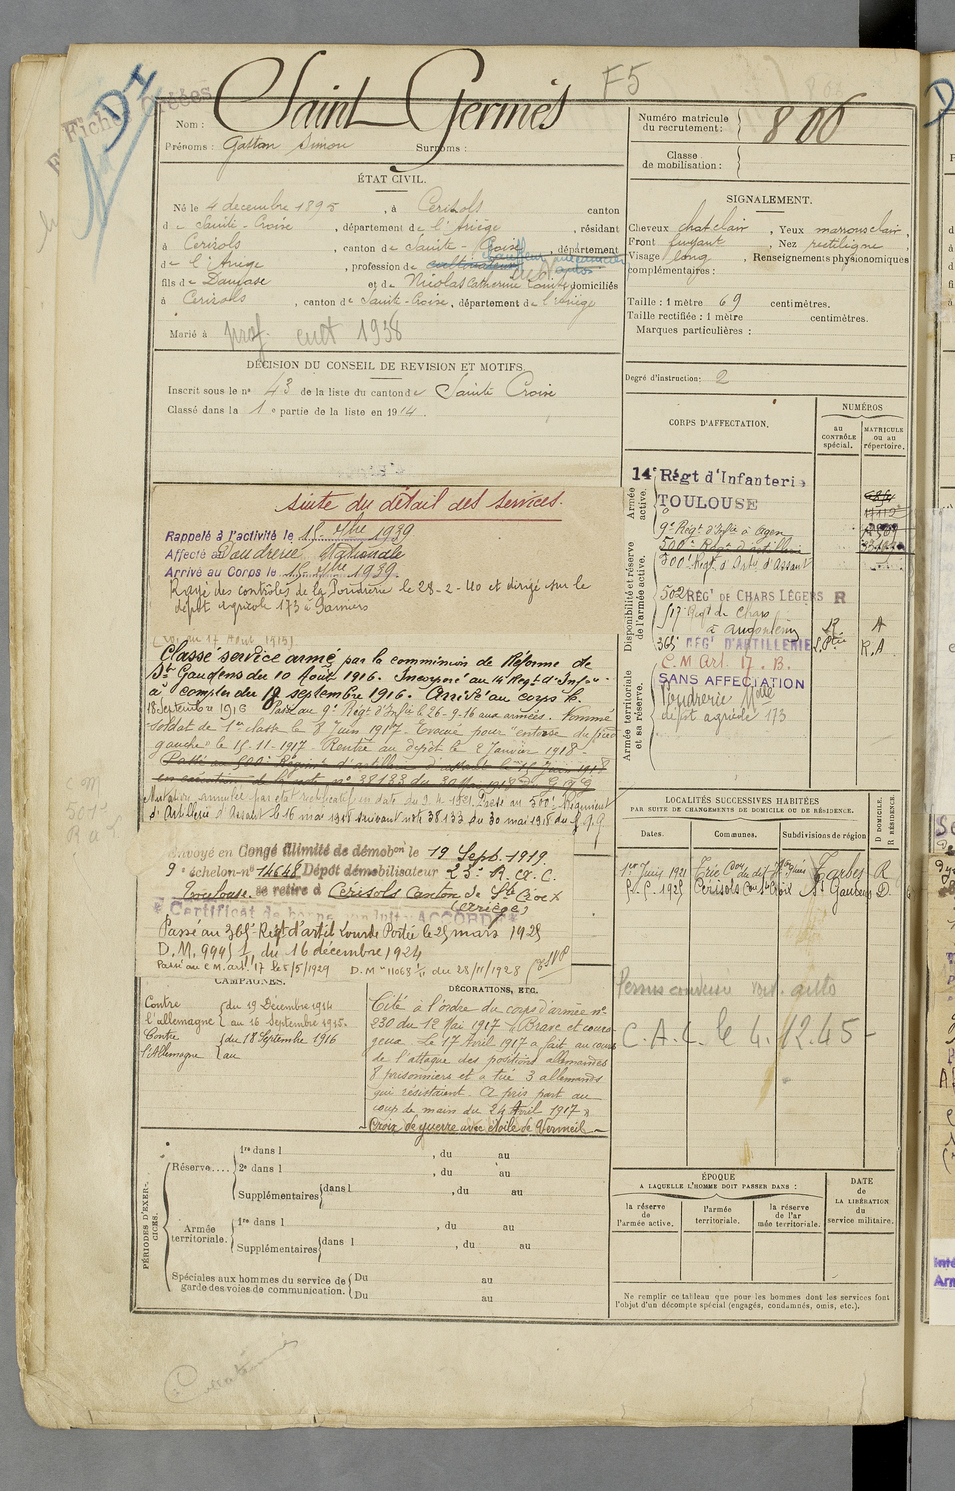 F5
Saint Germès
Nom :
Prénoms : Gaston Simon Surnoms :
Numéro matricule du recrutement : 806
Classe de mobilisation :
ÉTAT CIVIL.
Né le 4 décembre 1895, à Cerizols canton
de Sainte-Croix, département de l'Ariège, résidant
à Cerizols, canton de Sainte-Croix, département
de l'Ariège, profession de cultivateur
fils de Damase et de Nicolas Catherine domiciliés
à Cerizols, canton de Sainte-Croix, département de l'Ariège
Marié à
prof. cult 1938
SIGNALEMENT.
Cheveux chat clair, Yeux marrons clair,
Front fuyant, Nez rectiligne
Visage long, Renseignements physionomiques
complémentaires :
Taille : 1 mètre 69 centimètres.
Taille rectifiée : 1 mètre centimètres.
Marques particulières :
Degré d'instruction : 2
DÉCISION DU CONSEIL DE REVISION ET MOTIFS.
Inscrit sous le n° 43 de la liste du canton de Sainte Croix
Classé dans la 1e partie de la liste en 1914.
CORPS D'AFFECTATION.
NUMÉROS
au CONTRÔLE spécial.
MATRICULE ou au répertoire.
Armée active.
14e Régt d'Infanterie
TOULOUSE
Disponibilité et réserve de l'armée active.
9e Régt d'Infie à Agen
500e Régt d'artillie
500e Régt d'Arty d'Assaut
502 RÉGt DE CHARS LÉGERS R
517e Régt de Chars
à Angoulême R A
365e RÉGt D'ARTILLERIE L. Ptée R.A
Armée territoriale et sa réserve.
C.M Art. 17. B.
SANS AFFECTATION
Poudrerie Nlle
dépôt agricole 173
suite du détail des services.
Rappelé à l'activité le 15 7bre 1939
Affecté à Poudrerie Nationale
Arrivé au Corps le 15 7bre 1939.
Rayé des contrôles de la Poudrerie le 28-2-40 et dirigé sur le
dépôt agricole 173 à Pamiers
(Loi du 17 Août 1915)
Classé service armé par la commission de Réforme de
St Gaudens du 10 Août 1916. Incorporé au 14e Régt d'Infie
à compter du 12 septembre 1916. Arrivé au corps le
18 Septembre 1916 Passé au 9e Régt d'Infie le 26-9-16 aux armées. Nommé
soldat de 1re classe le 8 Juin 1917. Evacué pour "entorse du pied
gauche" le 15-11-1917. Rentré au dépôt le 2 Janvier 1918.
Passé au 500e Régiment d'artillerie d'assaut le 15 Juin 1918
en exécution de la note n° 38133 du 30 Mai 1918 du G.Q.G
Mutation annulée par état rectificatif en date du 1921. Passé au 500e Régiment
d'Artillerie d'Assaut le 16 mai 1918 suivant note 38133 du 30 mai 1918 du G.Q.G
envoyé en Congé illimité de démobon le 19 Sept. 1919.
9e échelon-n° 14648 Dépôt démobilisateur 23e R.
Toulouse. se retire à Cerizols Canton de Ste Croix
(Ariège)
Certificat de bonne conduite ACCORDÉ
Passé au 365e Régt d'artil Lourde Portée le 25 mars 1925
D.M. 9995 1/11 du 16 décembre 1924
Passé au C.M. art. 17 le 5/5/1929 D.M n° 11068 1/11 du 28/11/1928
LOCALITÉS SUCCESSIVES HABITÉES
PAR SUITE DE CHANGEMENTS DE DOMICILE OU DE RÉSIDENCE.
Dates. Communes. Subdivisions de région D DOMICILE. R RÉSIDENCE.
1er Juin 1921 Tarbes R
1925 Cerizols Con Ste Croix St Gaudens D.
Permis conduire voit. auto
C.A.L. le 4.12.45
CAMPAGNES.
Contre l'allemagne du 19 Décembre 1914
au 16 Septembre 1915.
Contre l'Allemagne du 18 Septembre 1916
au
DÉCORATIONS, ETC.
Cité à l'ordre du corps d'armée n°
230 du 12 Mai 1917 "Brave et coura-
geux. Le 17 Avril 1917 a fait au cours
de l'attaque des positions allemandes
8 prisonniers et a tué 3 allemands
qui résistaient. A pris part au
coup de main du 24 Avril 1917"
Croix de guerre avec étoile de Vermeil
PÉRIODES D'EXERCICES.
Réserve.... 1re dans l , du au
2e dans l , du au
Supplémentaires dans l , du au
Armée territoriale. 1re dans l , du au
Supplémentaires dans l , du au
Spéciales aux hommes du service de garde des voies de communication. Du au
Du au
ÉPOQUE
A LAQUELLE L'HOMME DOIT PASSER DANS :
la réserve de l'armée active. l'armée territoriale. la réserve de l'armée territoriale.
DATE de LA LIBÉRATION du service militaire.
Ne remplir ce tableau que pour les hommes dont les services font
l'objet d'un décompte spécial (engagés, condamnés, omis, etc.).